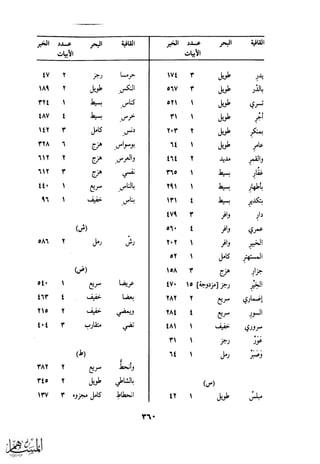 القافية البحر عدد الأبيات الخبر
يدر طويل ٣ ١٧٤
بالدّر طويل ٣ ٥٦٧
تسري طويل ١ ٥٢١
أجر طويل ١ ٣١
بمنكر طويل ٢ ٢٠٣
عامر طويل ١ ٦٤
والقمر مديد ٢ ٤٦٤
غفّار بسيط ١ ٣٦٥
بأطهار بسيط ١ ٢٩١
بتكدير بسيط ٤ ١٣١
دار وافر ٣ ٤٧٩
عمري وافر ٤ ٥٦٠
الخبير وافر ١ ٢٠٢
المستهتر كامل ١ ٥٢
جزار هزج ٣ ١٥٨
الخبر رجز [مزدوجة] ١٥ ٤٧٠
إضماري سريع ٢ ٢٨٢
السور سريع ٤ ٢٨٤
سروري خفيف ١ ٤٨١
عَوَرْ رجز ١ ٣١
وَصَبَرْ رمل ١ ٦٤
(س)
مبلسُ طويل ١ ٤٢
القافية البحر عدد الأبيات الخبر
حرمسا رجز ٢ ٤٧
النكس طويل ٢ ١٨٩
كناس بسيط ١ ٣٢٤
خرس بسيط ٤ ٤٨٧
دنس كامل ٣ ١٤٢
بوسواس هزج ٦ ٣٢٨
والعرس هزج ٢ ٦١٢
نفسي هزج ٣ ٦١٢
بالناس سريع ١ ٤٤٠
بناس خفيف ١ ٩٦
(ش)
رشّ رمل ٢ ٥٨٦
(ض)
عريضا سريع ١ ٥٤٠
بعضا خفيف ٤ ٤٦٣
وبيضي خفيف ٢ ٢١٥
تقضي متقارب ٣ ٤٠٤
(ط)
وأنحطُّ سريع ٢ ٣٨٢
بالشاطي طويل ٢ ٣٤٥
انحطاطِ كامل مجزوء ٣ ١٣٧
٣٦٠